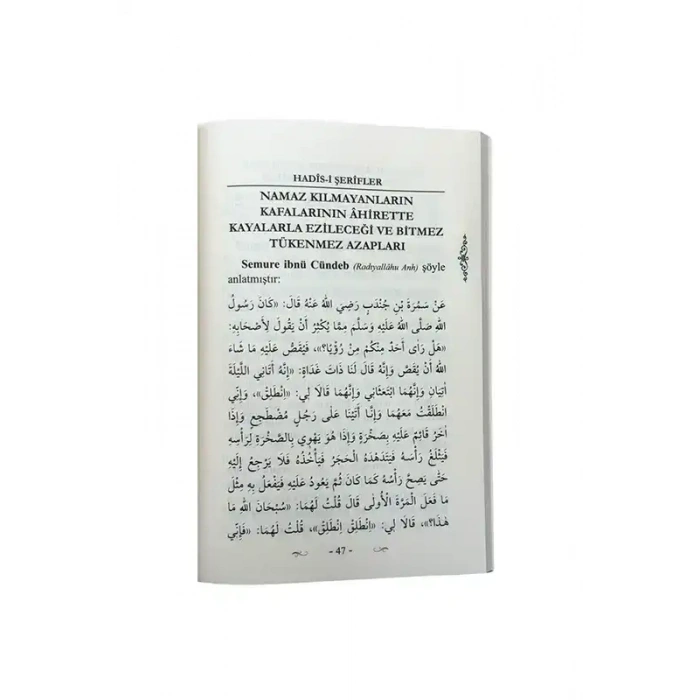 HADÎS-İ ŞERİFLER
NAMAZ KILMAYANLARIN
KAFALARININ ÂHİRETTE
KAYALARLA EZİLECEĞİ VE BİTMEZ
TÜKENMEZ AZAPLARI
Semure ibnü Cündeb (Radıyallâhu Anh) şöyle
anlatmıştır:
عَنْ سَمُرَةَ بْنِ جُنْدَبٍ رَضِيَ اللهُ عَنْهُ قَالَ: «كَانَ رَسُولُ
اللهِ صَلَّى اللهُ عَلَيْهِ وَسَلَّمَ مِمَّا يُكْثِرُ أَنْ يَقُولَ لِأَصْحَابِهِ:
«هَلْ رَاَى أَحَدٌ مِنْكُمْ مِنْ رُؤْيَا؟»، فَيَقُصُّ عَلَيْهِ مَا شَاءَ
اللهُ أَنْ يَقُصَّ وَإِنَّهُ قَالَ لَنَا ذَاتَ غَدَاةٍ: «إِنَّهُ أَتَانِي اللَّيْلَةَ
أٰتِيَانِ وَإِنَّهُمَا ابْتَعَثَانِي وَإِنَّهُمَا قَالَا لِي: «اِنْطَلِقْ»، وَإِنِّي
انْطَلَقْتُ مَعَهُمَا وَإِنَّا أَتَيْنَا عَلَى رَجُلٍ مُضْطَجِعٍ وَإِذَا
اٰخَرُ قَائِمٌ عَلَيْهِ بِصَخْرَةٍ وَإِذَا هُوَ يَهْوِي بِالصَّخْرَةِ لِرَأْسِهِ
فَيَثْلَغُ رَأْسَهُ فَيَتَدَهْدَهُ الْحَجَرُ فَيَأْخُذُهُ فَلَا يَرْجِعُ إِلَيْهِ
حَتَّى يَصِحَّ رَأْسُهُ كَمَا كَانَ ثُمَّ يَعُودُ عَلَيْهِ فَيَفْعَلُ بِهِ مِثْلَ
مَا فَعَلَ الْمَرَّةَ الْأُولَى قَالَ قُلْتُ لَهُمَا: «سُبْحَانَ اللهِ مَا
هٰذَا؟»، قَالَا لِي: «اِنْطَلِقْ اِنْطَلِقْ»، قُلْتُ لَهُمَا: «فَإِنِّي
- 47 -